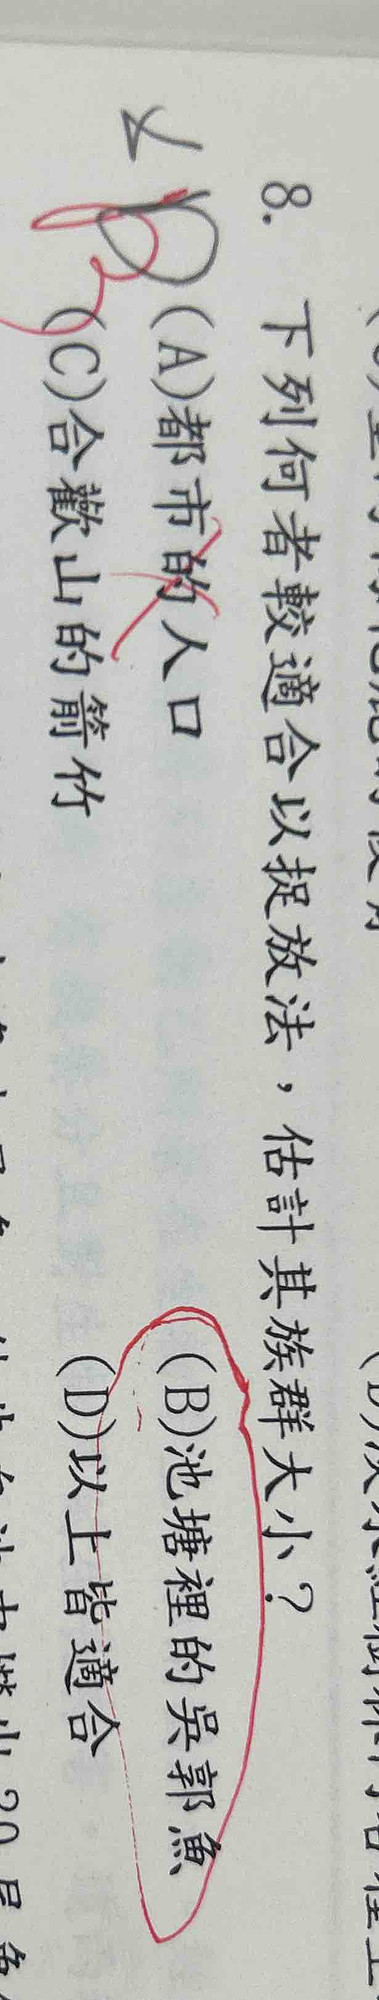 8. 下列何者較適合以捉放法，估計其族群大小？
(A)都市的人口
(B)池塘裡的吳郭魚
(C)合歡山的箭竹
(D)以上皆適合